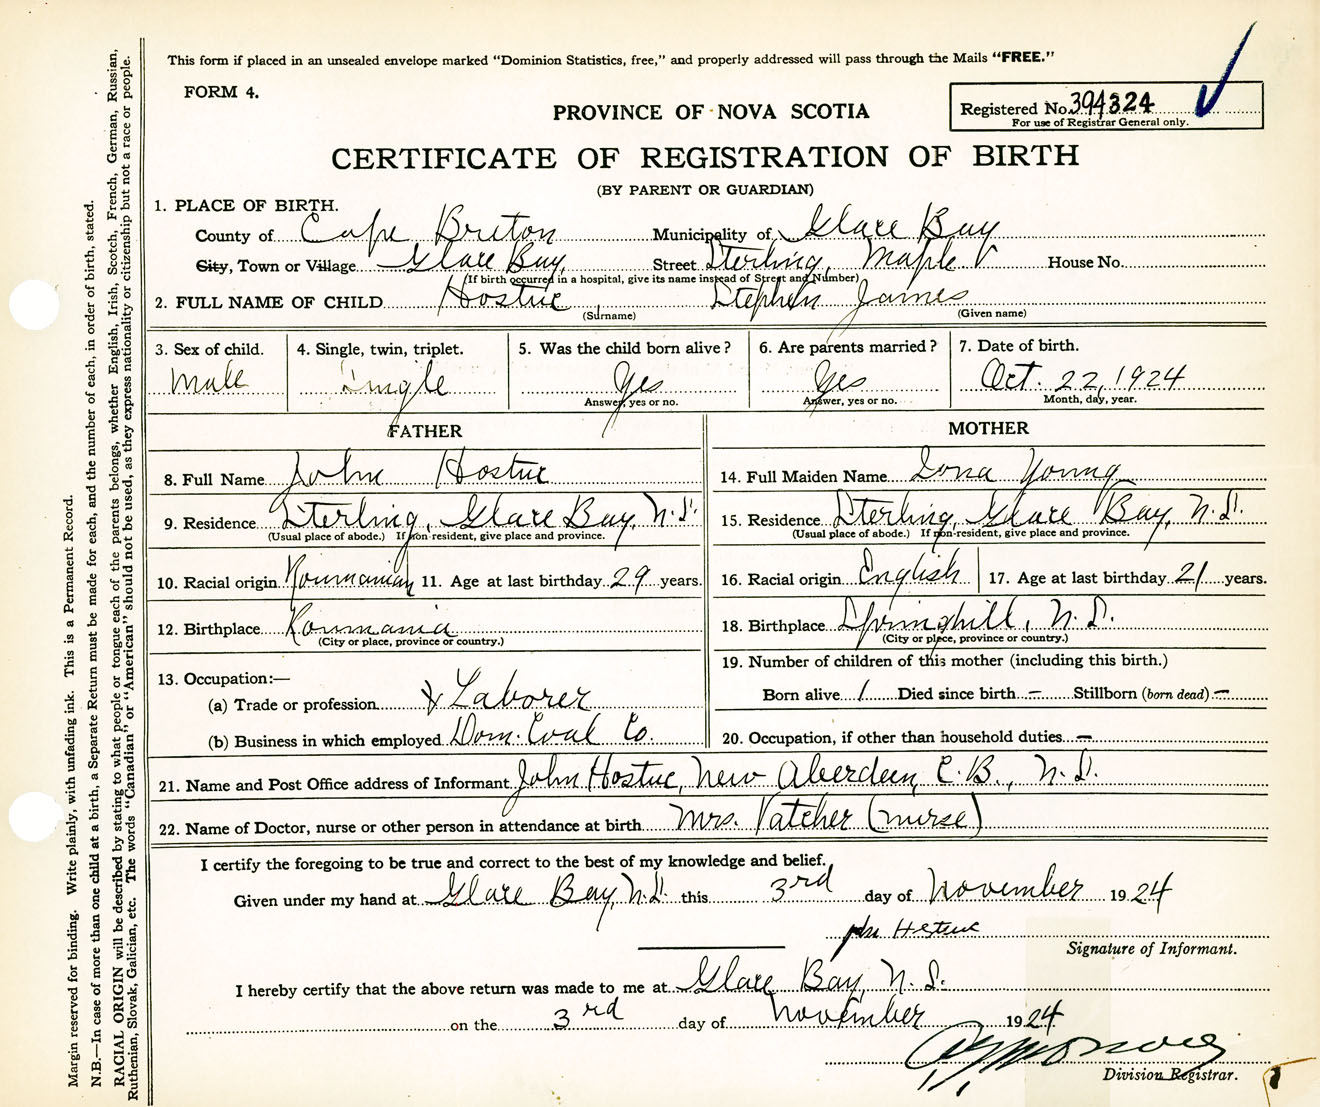 This form if placed in an unsealed envelope marked "Dominion Statistics, free," and properly addressed will pass through the Mails "FREE."
FORM 4.
PROVINCE OF NOVA SCOTIA
Registered No. 394324
For use of Registrar General only.
CERTIFICATE OF REGISTRATION OF BIRTH
(BY PARENT OR GUARDIAN)
1. PLACE OF BIRTH.
County of Cape Breton Municipality of Glace Bay
City, Town or Village Glace Bay, Street Sterling, Maple House No.
(If birth occurred in a hospital, give its name instead of Street and Number)
2. FULL NAME OF CHILD Hostuc, Stephen James
(Surname) (Given name)
3. Sex of child. 4. Single, twin, triplet. 5. Was the child born alive? 6. Are parents married? 7. Date of birth.
Male Single Yes Yes Oct. 22, 1924
Answer, yes or no. Answer, yes or no. Month, day, year.
FATHER
8. Full Name John Hostuc
9. Residence Sterling, Glace Bay, N.S.
(Usual place of abode.) If non-resident, give place and province.
10. Racial origin Roumanian 11. Age at last birthday 29 years.
12. Birthplace Roumania
(City or place, province or country.)
13. Occupation:—
(a) Trade or profession Laborer
(b) Business in which employed Dom. Coal Co.
MOTHER
14. Full Maiden Name Dona Young
15. Residence Sterling, Glace Bay, N.S.
(Usual place of abode.) If non-resident, give place and province.
16. Racial origin English 17. Age at last birthday 21 years.
18. Birthplace Springhill, N.S.
(City or place, province or country.)
19. Number of children of this mother (including this birth.)
Born alive 1 Died since birth — Stillborn (born dead) —
20. Occupation, if other than household duties —
21. Name and Post Office address of Informant John Hostuc, New Aberdeen, C.B., N.S.
22. Name of Doctor, nurse or other person in attendance at birth Mrs. Vatcher (nurse)
I certify the foregoing to be true and correct to the best of my knowledge and belief.
Given under my hand at Glace Bay, N.S. this 3rd day of November 1924
John Hostuc
Signature of Informant.
I hereby certify that the above return was made to me at Glace Bay, N.S.
on the 3rd day of November 1924
Division Registrar.
Margin reserved for binding. Write plainly, with unfading ink. This is a Permanent Record.
N.B.—In case of more than one child at a birth, a Separate Return must be made for each, and the number of each, in order of birth, stated.
RACIAL ORIGIN will be described by stating to what people or tongue each of the parents belongs, whether English, Irish, Scotch, French, German, Russian,
Ruthenian, Slovak, Galician, etc. The words "Canadian" or "American" should not be used, as they express nationality or citizenship but not a race or people.